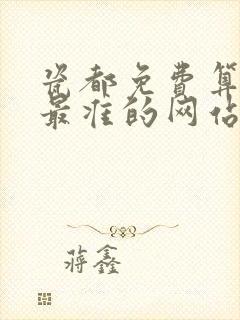 瓷都免费算
最准的网站
蒋鑫